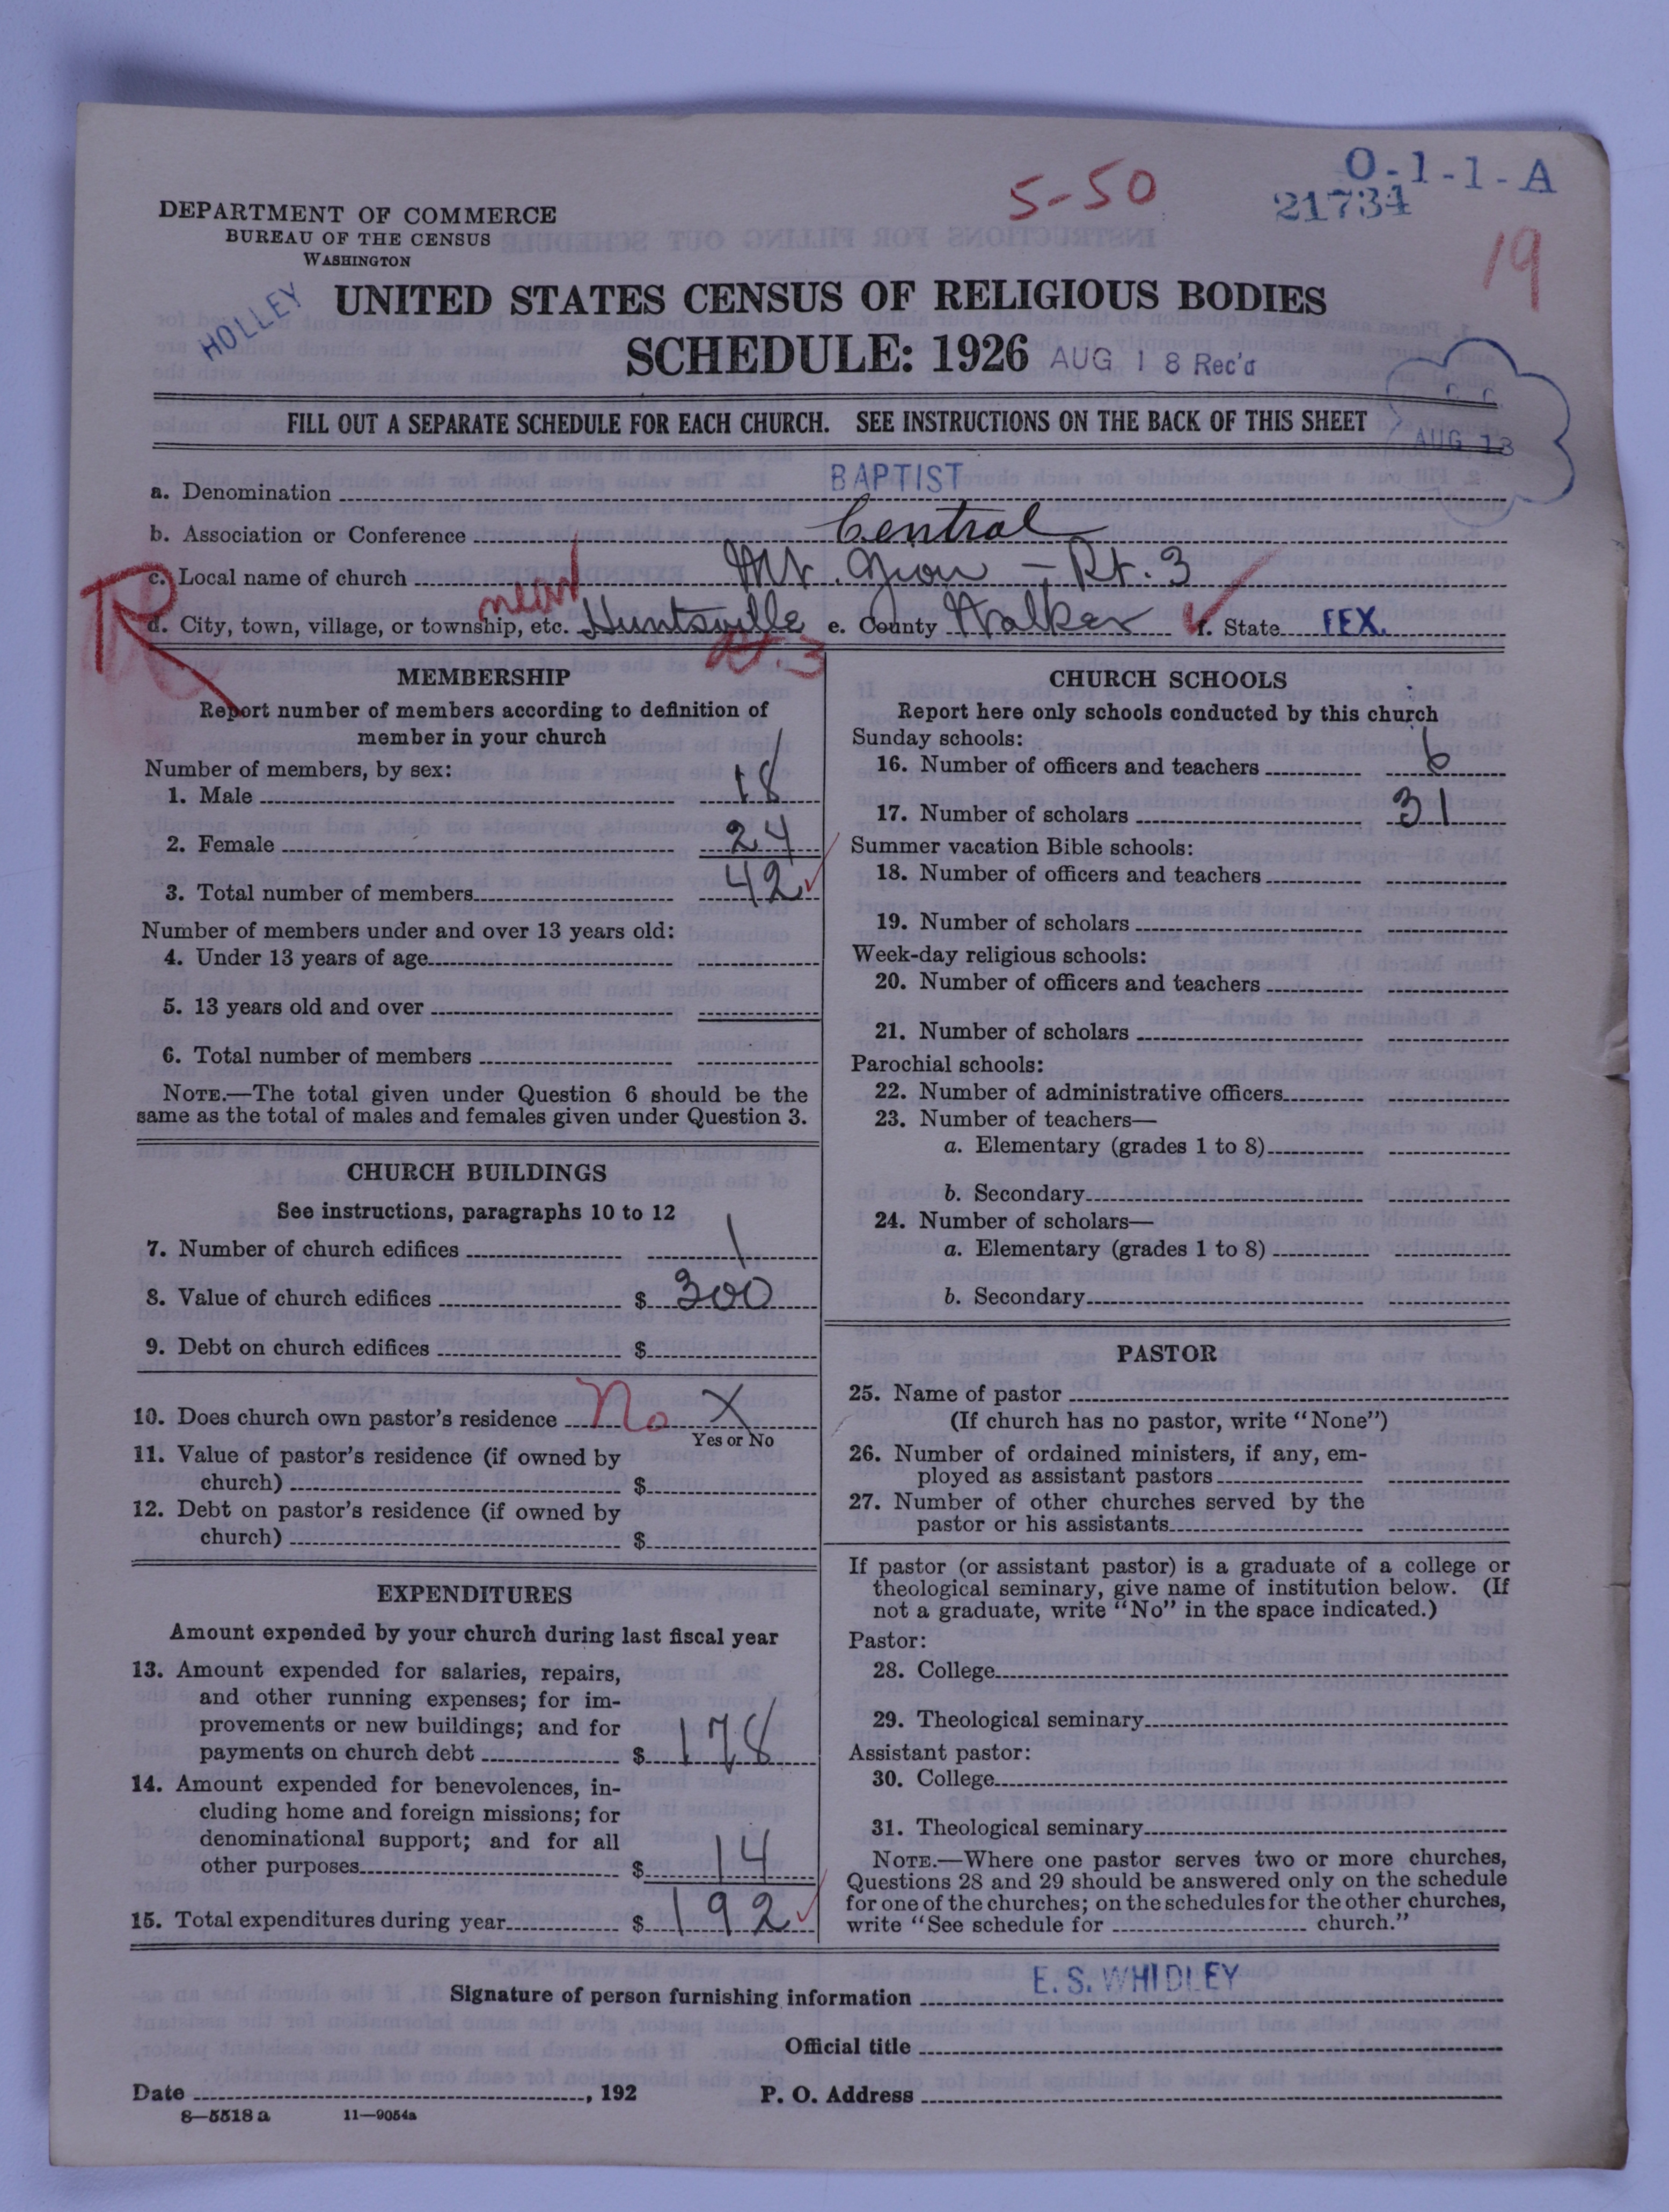 O-1-1-A
5-50
21734
19
DEPARTMENT OF COMMERCE
BUREAU OF THE CENSUS
WASHINGTON
HOLLEY
UNITED STATES CENSUS OF RELIGIOUS BODIES
SCHEDULE: 1926 AUG 18 Rec'd
FILL OUT A SEPARATE SCHEDULE FOR EACH CHURCH. SEE INSTRUCTIONS ON THE BACK OF THIS SHEET
AUG 13
a. Denomination BAPTIST
b. Association or Conference Central
R
c. Local name of church Mt. Zion - Rt. 3
near
d. City, town, village, or township, etc. Huntsville e. County Walker f. State TEX.
Rt. 3
MEMBERSHIP
Report number of members according to definition of
member in your church
Number of members, by sex:
1. Male 18
2. Female 24
3. Total number of members 42
Number of members under and over 13 years old:
4. Under 13 years of age
5. 13 years old and over
6. Total number of members
NOTE.—The total given under Question 6 should be the
same as the total of males and females given under Question 3.
CHURCH BUILDINGS
See instructions, paragraphs 10 to 12
7. Number of church edifices 1
8. Value of church edifices $ 300
9. Debt on church edifices $
10. Does church own pastor's residence No X
Yes or No
11. Value of pastor's residence (if owned by
church) $
12. Debt on pastor's residence (if owned by
church) $
EXPENDITURES
Amount expended by your church during last fiscal year
13. Amount expended for salaries, repairs,
and other running expenses; for im-
provements or new buildings; and for
payments on church debt $ 178
14. Amount expended for benevolences, in-
cluding home and foreign missions; for
denominational support; and for all
other purposes $ 14
15. Total expenditures during year $ 192
CHURCH SCHOOLS
Report here only schools conducted by this church
Sunday schools:
16. Number of officers and teachers 6
17. Number of scholars 31
Summer vacation Bible schools:
18. Number of officers and teachers
19. Number of scholars
Week-day religious schools:
20. Number of officers and teachers
21. Number of scholars
Parochial schools:
22. Number of administrative officers
23. Number of teachers—
a. Elementary (grades 1 to 8)
b. Secondary
24. Number of scholars—
a. Elementary (grades 1 to 8)
b. Secondary
PASTOR
25. Name of pastor
(If church has no pastor, write "None")
26. Number of ordained ministers, if any, em-
ployed as assistant pastors
27. Number of other churches served by the
pastor or his assistants
If pastor (or assistant pastor) is a graduate of a college or
theological seminary, give name of institution below. (If
not a graduate, write "No" in the space indicated.)
Pastor:
28. College
29. Theological seminary
Assistant pastor:
30. College
31. Theological seminary
NOTE.—Where one pastor serves two or more churches,
Questions 28 and 29 should be answered only on the schedule
for one of the churches; on the schedules for the other churches,
write "See schedule for church."
Signature of person furnishing information E. S. WHIDLEY
Official title
Date , 192 P. O. Address
8—5518 a 11—9054a